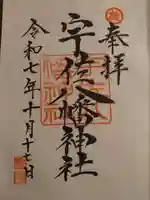 奉拝
宇佐八幡神社
令和七年十月十七日